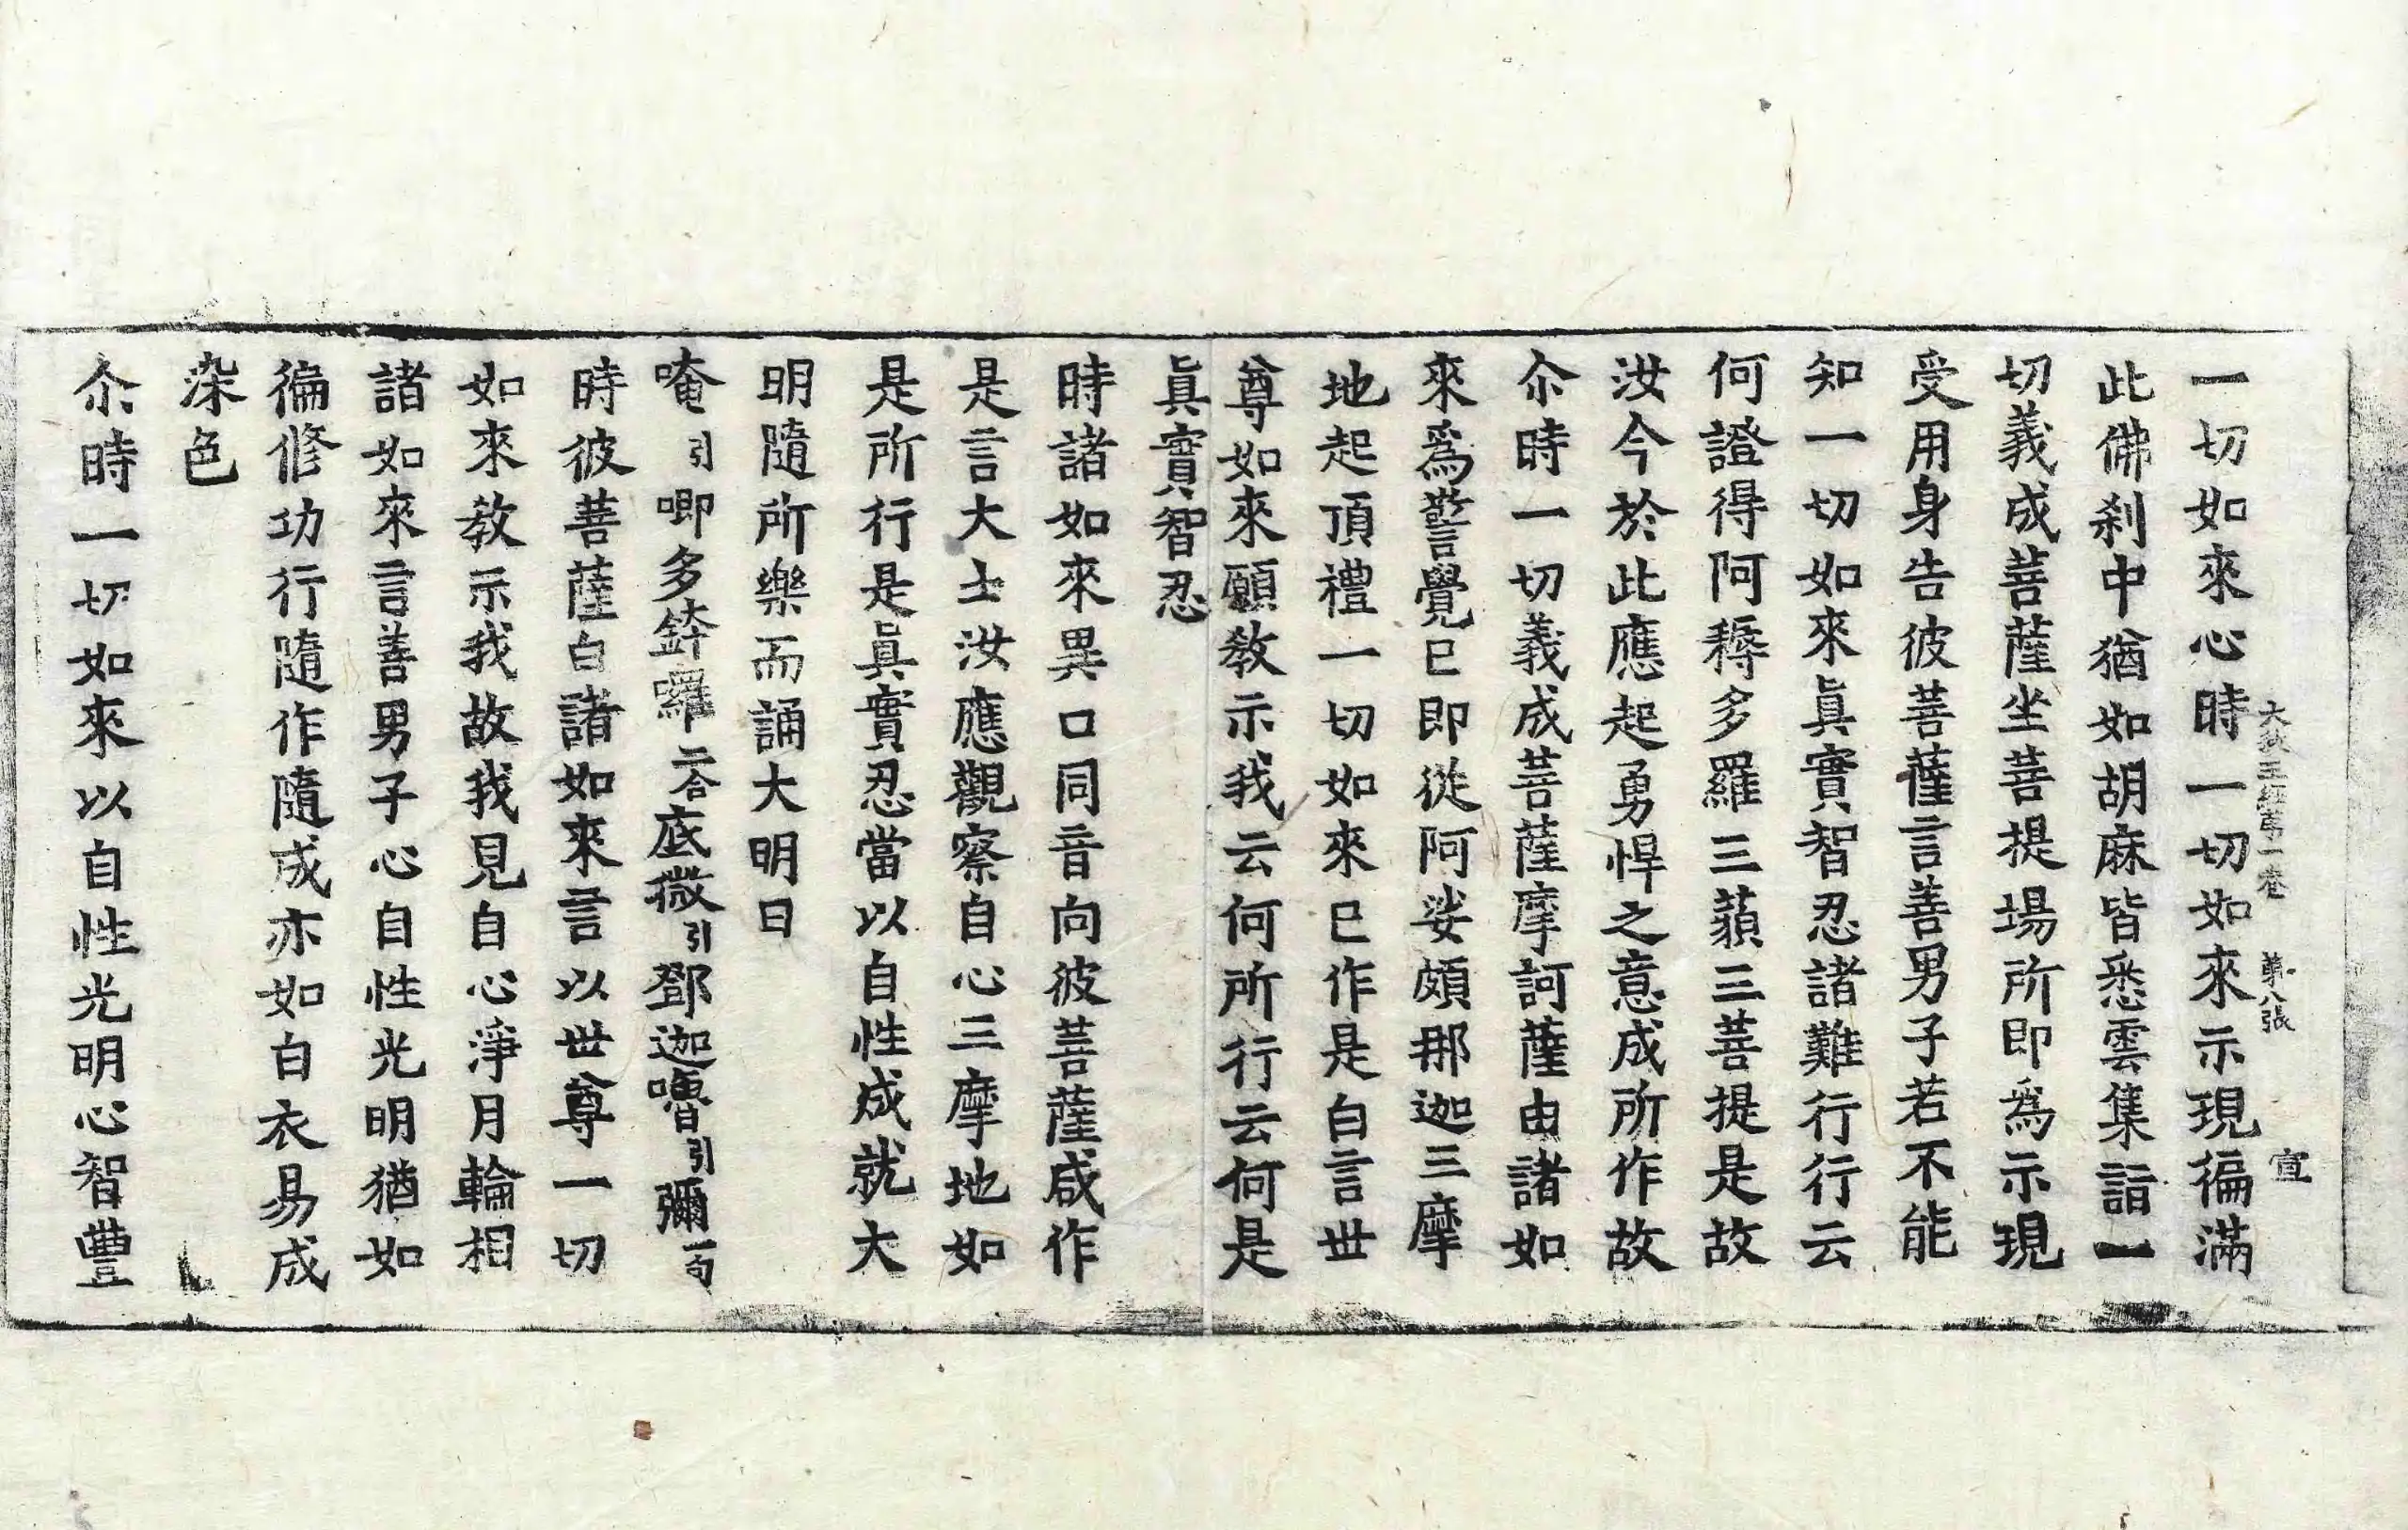 大教王經第一卷　第八張　宣
一切如來心時一切如來示現徧滿
此佛刹中猶如胡麻皆悉雲集詣一
切義成菩薩坐菩提場所即爲示現
受用身告彼菩薩言善男子若不能
知一切如來眞實智忍諸難行行云
何證得阿耨多羅三藐三菩提是故
汝今於此應起勇悍之意成所作故
尒時一切義成菩薩摩訶薩由諸如
來爲警覺已即從阿娑頗那迦三摩
地起頂禮一切如來已作是白言世
尊如來願敎示我云何所行云何是
眞實智忍
時諸如來異口同音向彼菩薩咸作
是言大士汝應觀察自心三摩地如
是所行是眞實忍當以自性成就大
明隨所樂而誦大明曰
唵引唧多鉢囉二合底微引鄧迦嚕引彌一句
時彼菩薩白諸如來言以世尊一切
如來敎示我故我見自心淨月輪相
諸如來言善男子心自性光明猶如
徧修功行隨作隨成亦如白衣易成
染色
尒時一切如來以自性光明心智豐